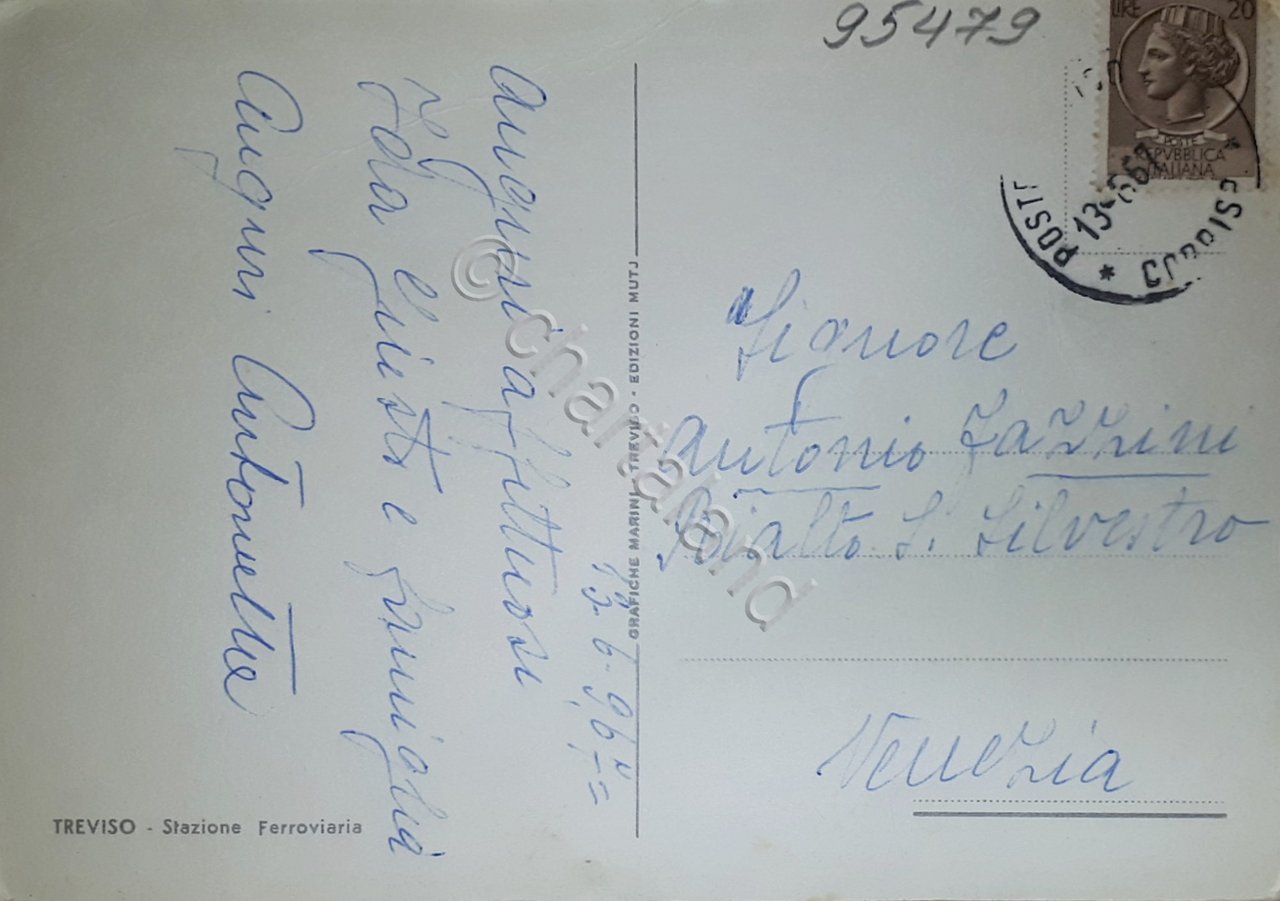 95479
LIRE 20
POSTE
REPVBBLICA
ITALIANA
POSTE
13
Auguri affettuosi
Ida Giusto e famiglia
Auguri Antonetta
GRAFICHE MARINI - TREVISO - EDIZIONI MUTJ
Signore
Antonio Zazzini
Rialto S. Silvestro
Venezia
TREVISO - Stazione Ferroviaria
© chartaland